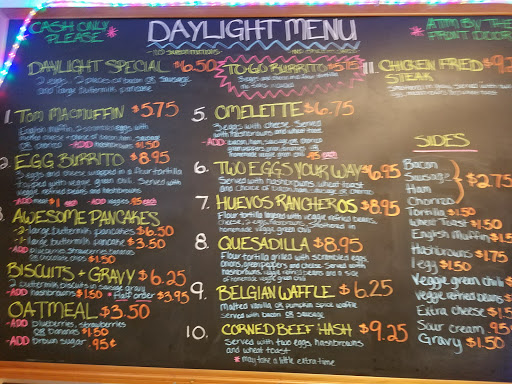 CASH ONLY
PLEASE *
DAYLIGHT MENU
- NO SUBSTITUTIONS
* ATM BY THE
FRONT DOOR
DAYLIGHT SPECIAL $6.50
2 eggs, 2 pieces of bacon OR sausage
and large buttermilk pancake
1. TOM MACMUFFIN $5.75
English muffin, 2 scrambled eggs, with
bacon, ham, sausage
-ADD hashbrowns $1.50
2. EGG BURRITO $8.95
3 eggs and cheese wrapped in a flour tortilla
topped with veggie green chili. Served with
veggie refried beans and hashbrowns
-ADD meat $1 -ADD veggies .95
3. AWESOME PANCAKES
-2- large buttermilk pancakes $6.50
-1- large buttermilk pancake $3.50
-ADD blueberries, strawberries, bananas
OR chocolate chips $1.50
BISCUITS + GRAVY $6.25
2 buttermilk biscuits in sausage gravy
-ADD hashbrowns $1.50 * Half order $3.95
OATMEAL $3.50
-ADD blueberries, strawberries
OR bananas $1.50
-ADD brown sugar .95¢
TO GO BURRITO $5.75
5. OMELETTE $6.75
3 eggs with cheese. Served
with hashbrowns and wheat toast
-ADD bacon, ham, sausage OR chorizo
homemade veggie green chili .95 each
6. TWO EGGS YOUR WAY $6.95
Served with hashbrowns, wheat toast
and choice of bacon, ham, sausage OR chorizo
7. HUEVOS RANCHEROS $8.95
Flour tortilla layered with veggie refried beans,
cheese, 2 eggs, hashbrowns, smothered in
homemade veggie green chili
8. QUESADILLA $8.95
Flour tortilla grilled with scrambled eggs,
onions, green peppers and cheese. Served with
hashbrowns, veggie refried beans and a side
of homemade veggie green chili
9. BELGIAN WAFFLE $6.25
Malted vanilla OR pumpkin spice waffle
served with bacon OR sausage
10. CORNED BEEF HASH $9.25
Served with two eggs, hashbrowns
and wheat toast
* may take a little extra time
11. CHICKEN FRIED $9.2
STEAK
SIDES
Bacon
Sausage
Ham
Chorizo
$2.75
Tortilla $1.50
Wheat Toast $1.50
English Muffin $1.5
Hashbrowns $1.75
1 egg $1.50
Veggie green chili $
Veggie refried beans $
Extra cheese $1.5
Sour cream .95¢
Gravy $1.50